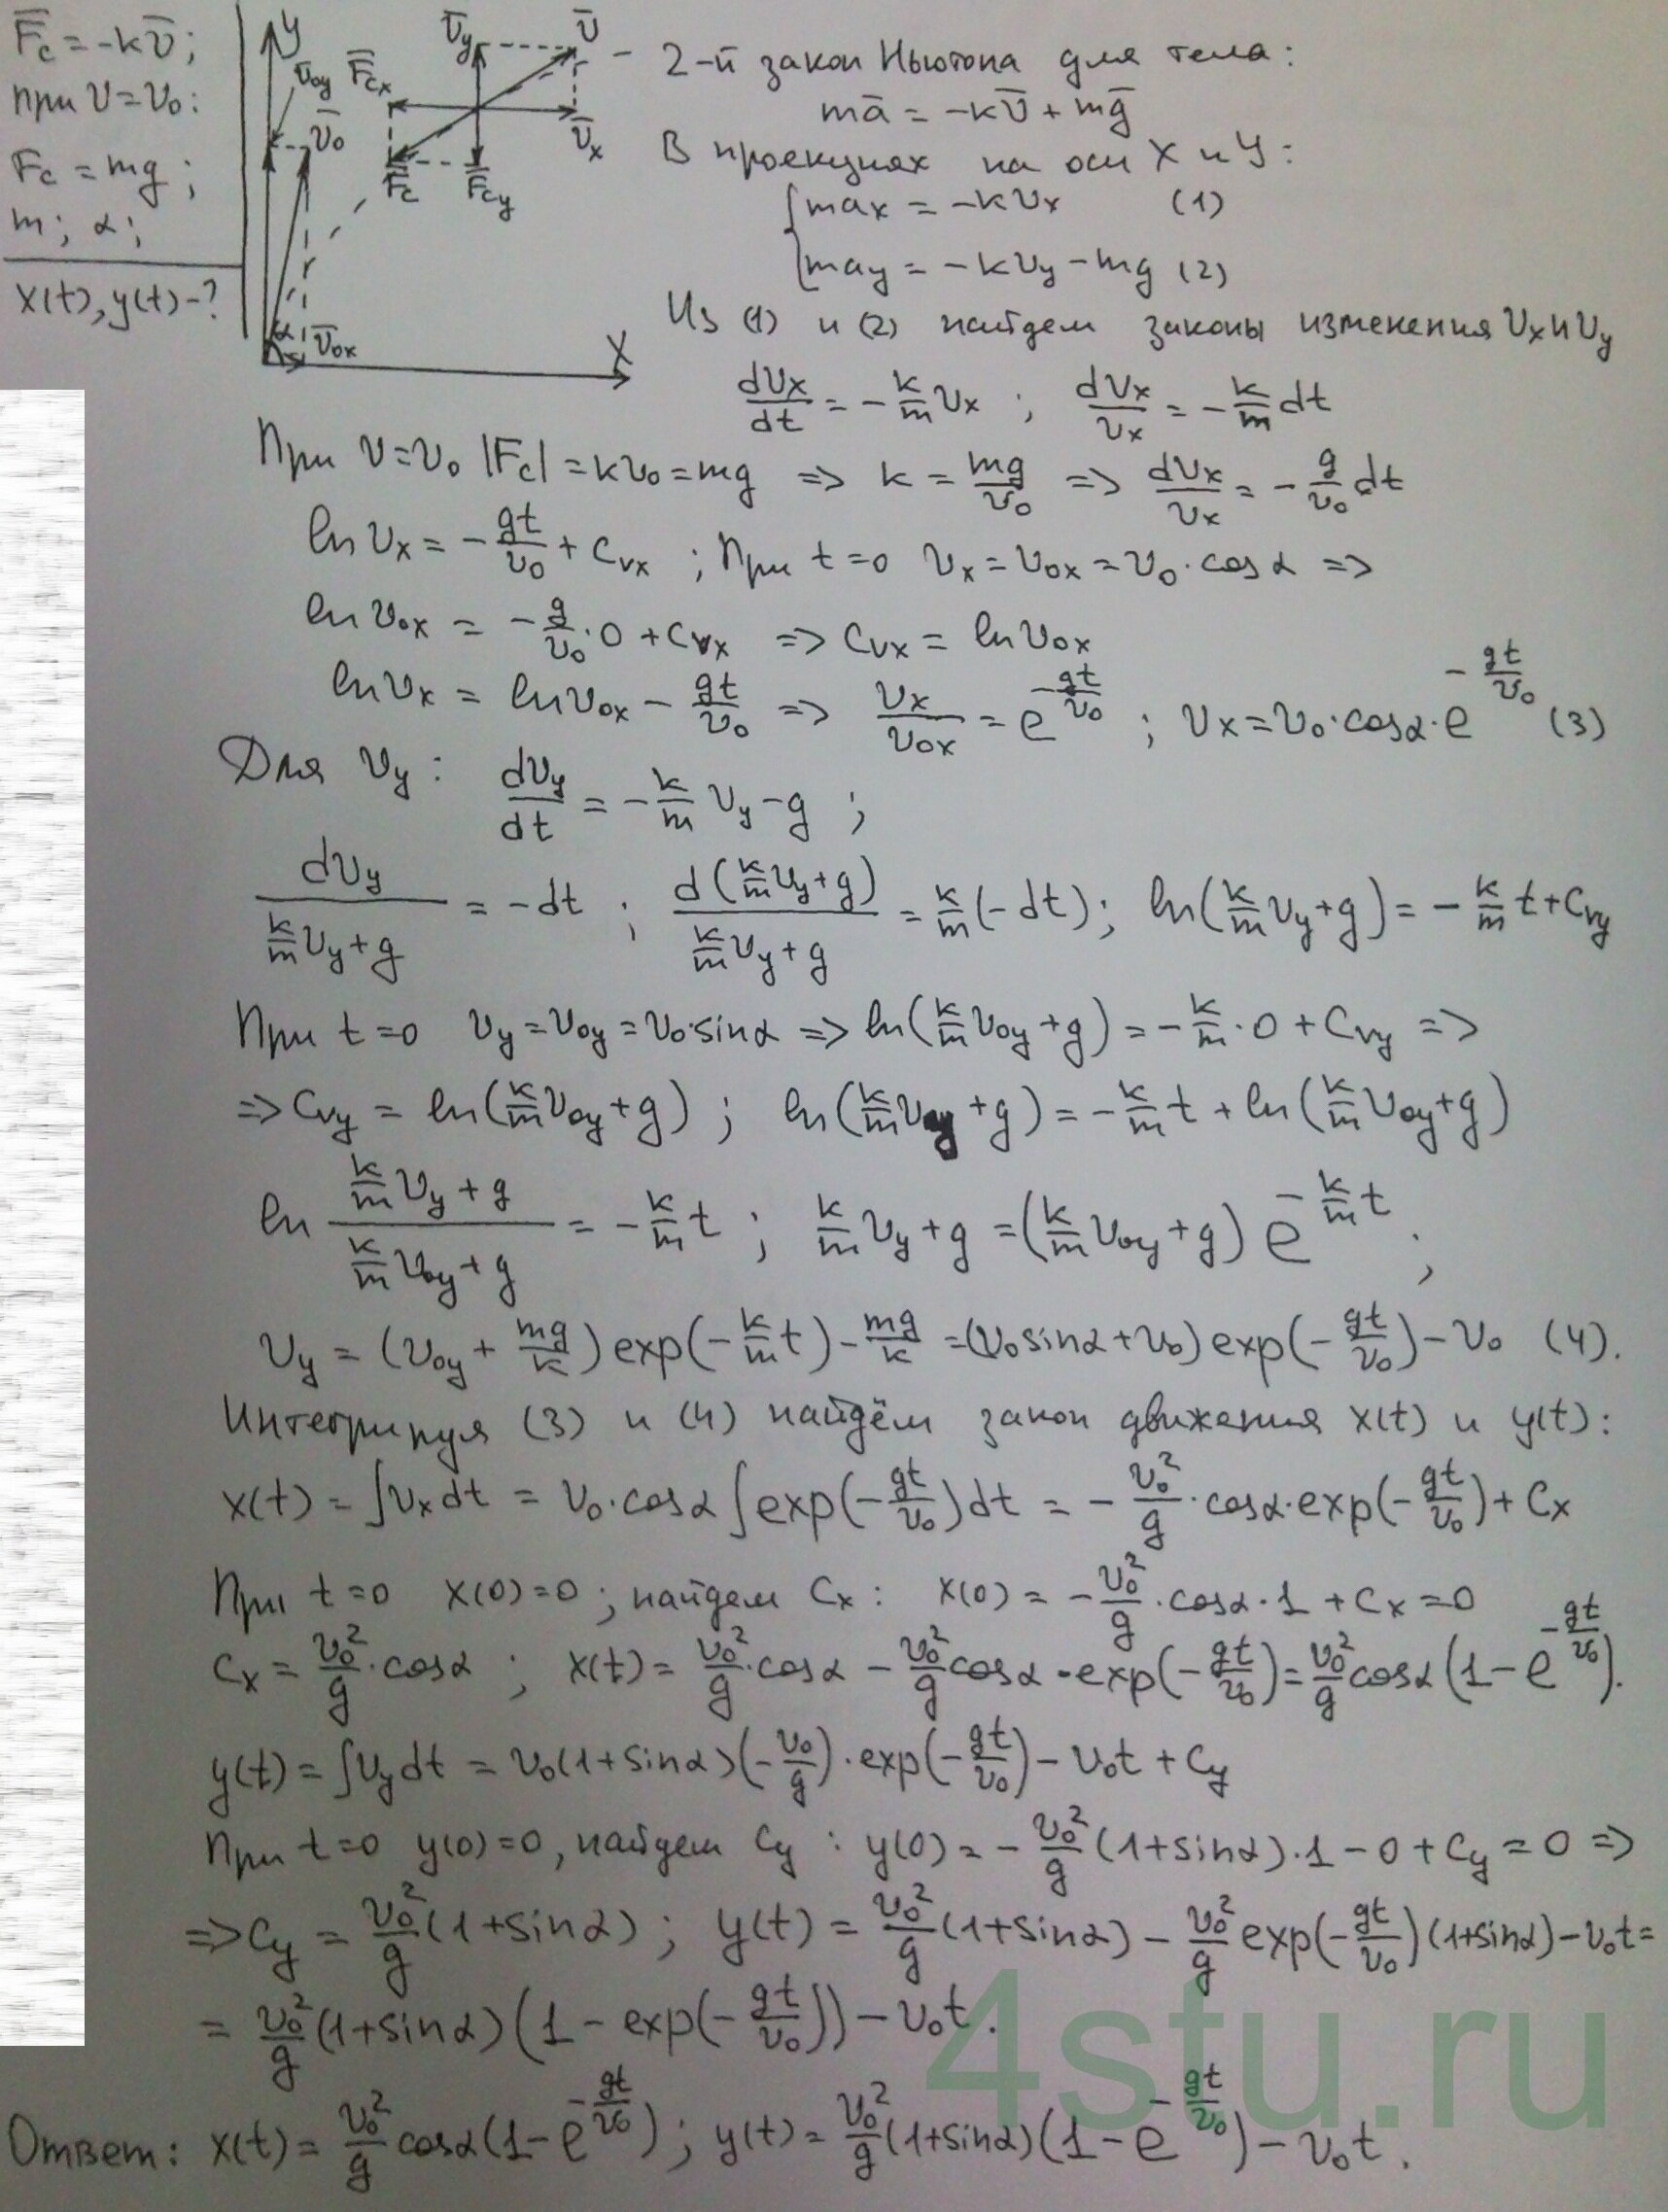 F̅c = -kv̅;
при v = v₀:
Fc = mg;
m; α;
x(t), y(t) - ?
y
v̅₀y
v̅₀
α
v̅₀x
X
v̅y
v̅
F̅cx
v̅x
F̅c
F̅cy
- 2-й закон Ньютона для тела:
ma̅ = -kv̅ + mg̅
В проекциях на оси X и Y:
{max = -kvx (1)
may = -kvy - mg (2)
Из (1) и (2) найдем законы изменения vx и vy
dvx/dt = -k/m vx ; dvx/vx = -k/m dt
При v = v₀ |Fc| = kv₀ = mg => k = mg/v₀ => dvx/vx = -g/v₀ dt
ln vx = -gt/v₀ + Cvx ; При t = 0 vx = v₀x = v₀·cosα =>
ln v₀x = -g/v₀·0 + Cvx => Cvx = ln v₀x
ln vx = ln v₀x - gt/v₀ => vx/v₀x = e^(-gt/v₀) ; vx = v₀·cosα·e^(-gt/v₀) (3)
Для vy: dvy/dt = -k/m vy - g ;
dvy/(k/m vy + g) = -dt ; d(k/m vy + g)/(k/m vy + g) = k/m(-dt); ln(k/m vy + g) = -k/m t + Cvy
При t = 0 vy = v₀y = v₀·sinα => ln(k/m v₀y + g) = -k/m·0 + Cvy =>
=> Cvy = ln(k/m v₀y + g) ; ln(k/m vy + g) = -k/m t + ln(k/m v₀y + g)
ln (k/m vy + g)/(k/m v₀y + g) = -k/m t ; k/m vy + g = (k/m v₀y + g) e^(-k/m t) ;
vy = (v₀y + mg/k) exp(-k/m t) - mg/k = (v₀ sinα + v₀) exp(-gt/v₀) - v₀ (4).
Интегрируя (3) и (4) найдём закон движения x(t) и y(t):
x(t) = ∫vx dt = v₀·cosα ∫exp(-gt/v₀)dt = -v₀²/g·cosα·exp(-gt/v₀) + Cx
При t = 0 x(0) = 0 ; найдем Cx: x(0) = -v₀²/g·cosα·1 + Cx = 0
Cx = v₀²/g·cosα ; x(t) = v₀²/g·cosα - v₀²/g cosα·exp(-gt/v₀) = v₀²/g cosα(1 - e^(-gt/v₀)).
y(t) = ∫vy dt = v₀(1 + sinα)(-v₀/g)·exp(-gt/v₀) - v₀t + Cy
При t = 0 y(0) = 0, найдем Cy : y(0) = -v₀²/g (1 + sinα)·1 - 0 + Cy = 0 =>
=> Cy = v₀²/g (1 + sinα) ; y(t) = v₀²/g (1 + sinα) - v₀²/g exp(-gt/v₀)(1 + sinα) - v₀t =
= v₀²/g (1 + sinα)(1 - exp(-gt/v₀)) - v₀t.
4stu.ru
Ответ: x(t) = v₀²/g cosα(1 - e^(-gt/v₀)) ; y(t) = v₀²/g (1 + sinα)(1 - e^(-gt/v₀)) - v₀t.